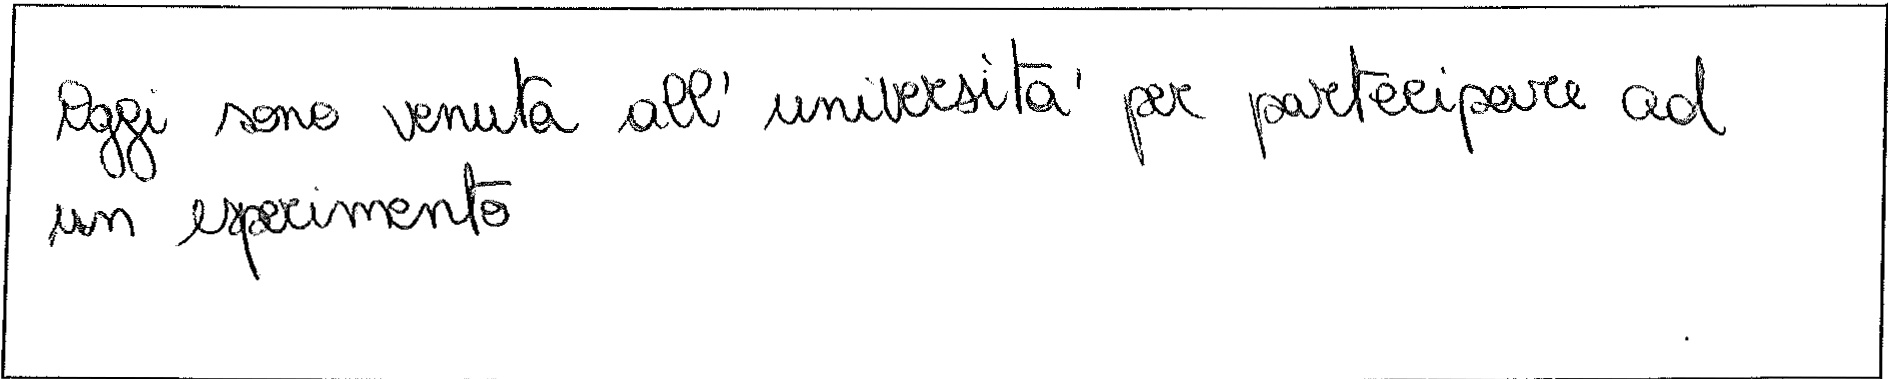 Oggi sono venuta all' università per partecipare ad
un esperimento